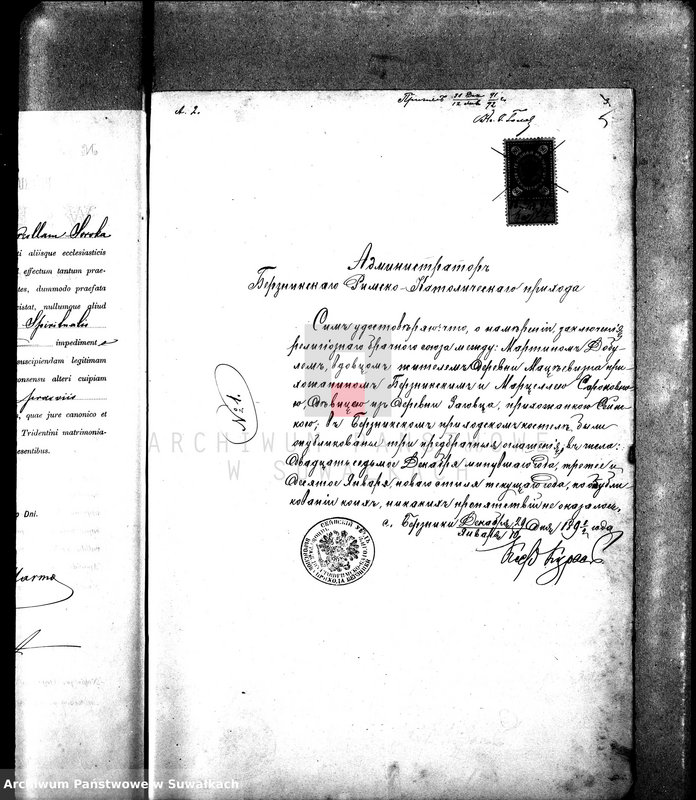 ollam Soroka
ti aliisque ecclesiasticis
effectum tantum prae-
tes, dummodo praefata
xistat, nullumque aliud
Spiritualis
impediment
suscipiendam legitimam
onsensu alteri cuipiam
praeviis
, quae jure canonico et
Tridentini matrimonia-
esentibus.
o Dni.
A. 2.
Администраторъ
Берзникскаго Римско-Католическаго прихода
№ 1.
Симъ удостовѣряю: что, о намѣреніи заключенія
религіознаго брачнаго союза между: Мартиномъ
вдовцомъ жителемъ деревни при-
хожаниномъ Берзникскимъ и Марцеллею
дѣвицею изъ деревни прихожанкою
въ Берзникскомъ приходскомъ костелѣ были
опубликованы три предбрачныя оглашенія, въ числа:
Двадцать седьмое Декабря минувшаго года, третье и
Десятое Января новаго стиля текущаго года, по опубли-
кованіи коихъ, никакихъ препятствій не оказалось.
Берзники Декабря 29 дня года
Января 10
ARCHIWUM PAŃSTWOWE
W SUWAŁKACH
Archiwum Państwowe w Suwałkach